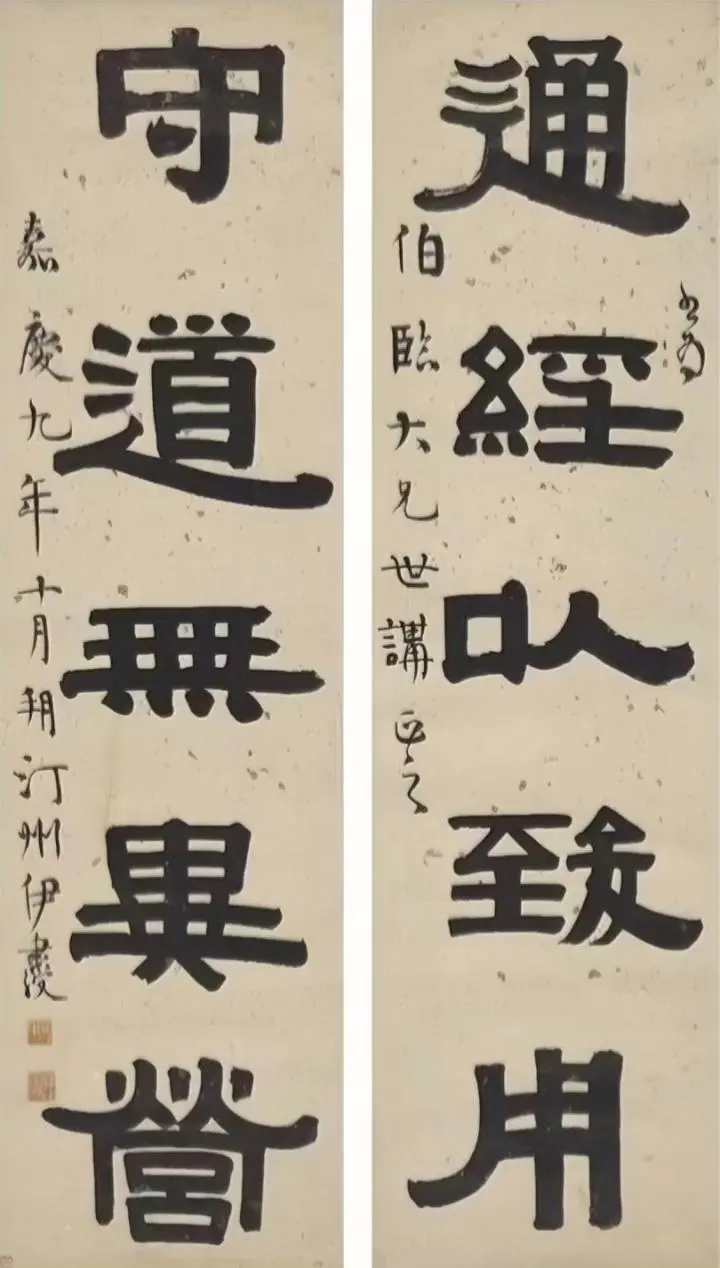 書為
通經以致用
伯臨大兄世講正之
守道無異營
嘉慶九年十月朔汀州伊秉綬